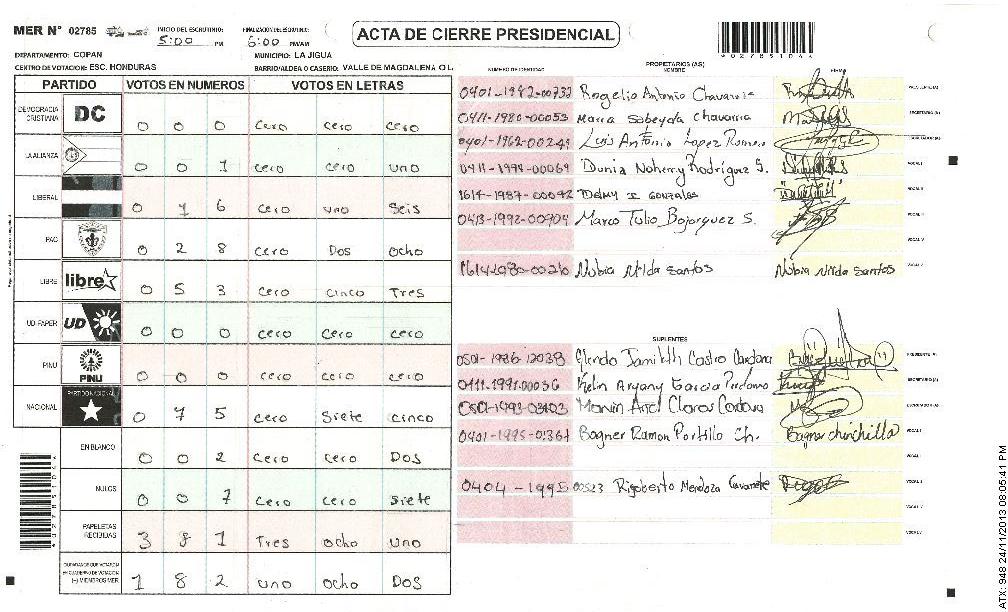 MER N° 02785
INICIO DEL ESCRUTINIO: 5:00 PM
FINALIZACION DEL ESCRUTINIO: 6:00 PM/AM
ACTA DE CIERRE PRESIDENCIAL
DEPARTAMENTO: COPAN
MUNICIPIO: LA JIGUA
CENTRO DE VOTACION: ESC. HONDURAS
BARRIO/ALDEA O CASERIO: VALLE DE MAGDALENA O L.
PARTIDO VOTOS EN NUMEROS VOTOS EN LETRAS
DEMOCRACIA CRISTIANA DC 0 0 0 cero cero cero
LA ALIANZA 0 0 1 cero cero uno
LIBERAL 0 1 6 cero uno Seis
PAC 0 2 8 cero Dos ocho
LIBRE libre 0 5 3 cero cinco Tres
UD-FAPER UD 0 0 0 cero cero cero
PINU PINU 0 0 0 cero cero cero
NACIONAL PARTIDO NACIONAL 0 7 5 cero Siete cinco
EN BLANCO 0 0 2 cero cero Dos
NULOS 0 0 7 cero cero siete
PAPELETAS RECIBIDAS 3 8 1 Tres ocho uno
(-) MIEMBROS MER 1 8 2 uno ocho Dos
NUMERO DE IDENTIDAD PROPIETARIOS (AS) NOMBRE FIRMA
0401-1982-00732 Rogelio Antonio PRESIDENTE (A)
0411-1980-00053 Maria Sobeyda Chavarria SECRETARIO (A)
0401-1962-00249 Luis Antonio Lopez Romero ESCRUTADOR (A)
0411-1994-00069 Dunia Noheny Rodriguez S. VOCAL I
1614-1987-00092 Delmy I Gonzales VOCAL II
0413-1992-00904 Marco Tulio Bojorquez S.
VOCAL IV
Nubia Nilda santos Nubia Nilda santos
SUPLENTES
0501-1986-12038 Jamileth Castro Cardona PRESIDENTE (A)
0411-1991-00036 Kelin Aryany Garcia SECRETARIO (A)
0501-1993-03103 Marvin Ariel Claros Cordova ESCRUTADOR (A)
0401-1995-01367 Bagner Ramon Portillo Ch. Bagner chinchilla VOCAL I
0404-1995 00523 Rigoberto Mendoza
402785104
402785104
ATX: 948 24/11/2013 08:05:41 PM